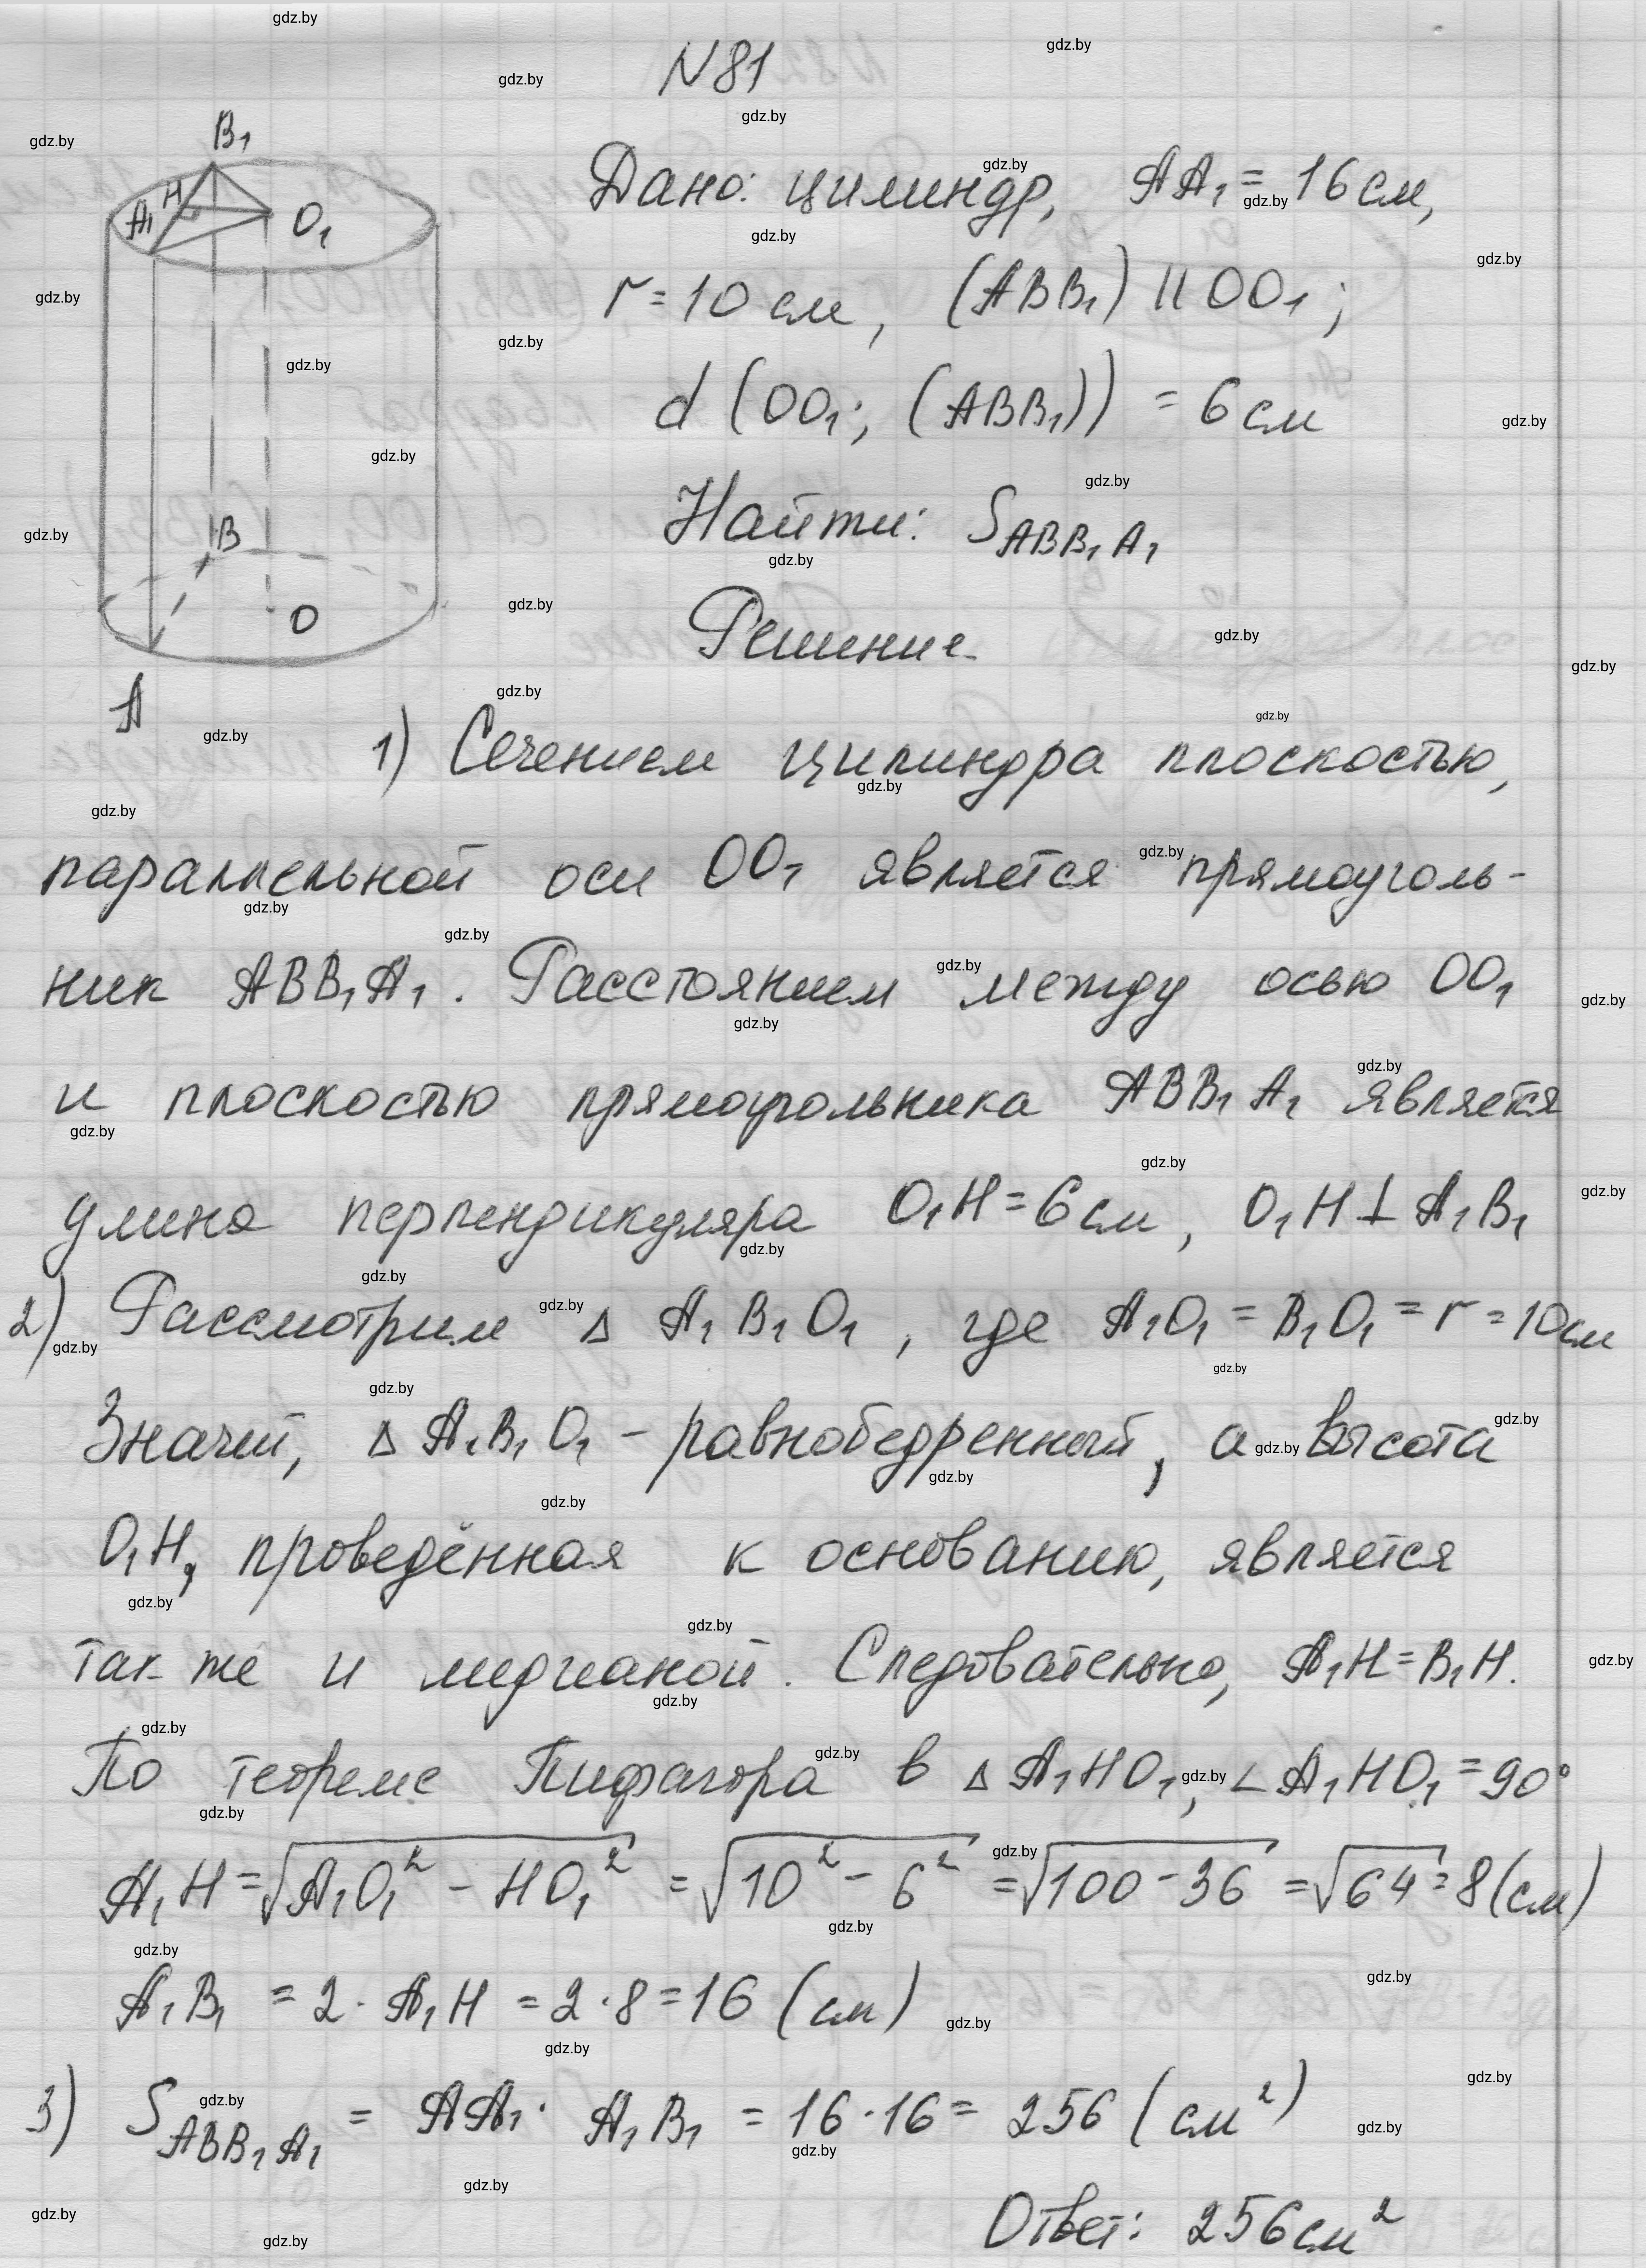 N81
B₁
H
A₁
O₁
B
O
A
Дано: цилиндр, AA₁ = 16 см,
r = 10 см, (ABB₁) || OO₁;
d (OO₁; (ABB₁)) = 6 см
Найти: S ABB₁A₁
Решение.
1) Сечением цилиндра плоскостью,
параллельной оси OO₁ является прямоуголь-
ник ABB₁A₁. Расстоянием между осью OO₁
и плоскостью прямоугольника ABB₁A₁ является
длина перпендикуляра O₁H = 6 см, O₁H ⊥ A₁B₁
2) Рассмотрим Δ A₁B₁O₁, где A₁O₁ = B₁O₁ = r = 10 см
Значит, Δ A₁B₁O₁ - равнобедренный, а высота
O₁H, проведённая к основанию, является
так же и медианой. Следовательно, A₁H = B₁H.
По теореме Пифагора в Δ A₁HO₁, ∠ A₁HO₁ = 90°
A₁H = √(A₁O₁² - HO₁²) = √(10² - 6²) = √(100 - 36) = √64 = 8 (см)
A₁B₁ = 2 · A₁H = 2 · 8 = 16 (см)
3) S ABB₁A₁ = AA₁ · A₁B₁ = 16 · 16 = 256 (см²)
Ответ: 256 см²
gdz.by